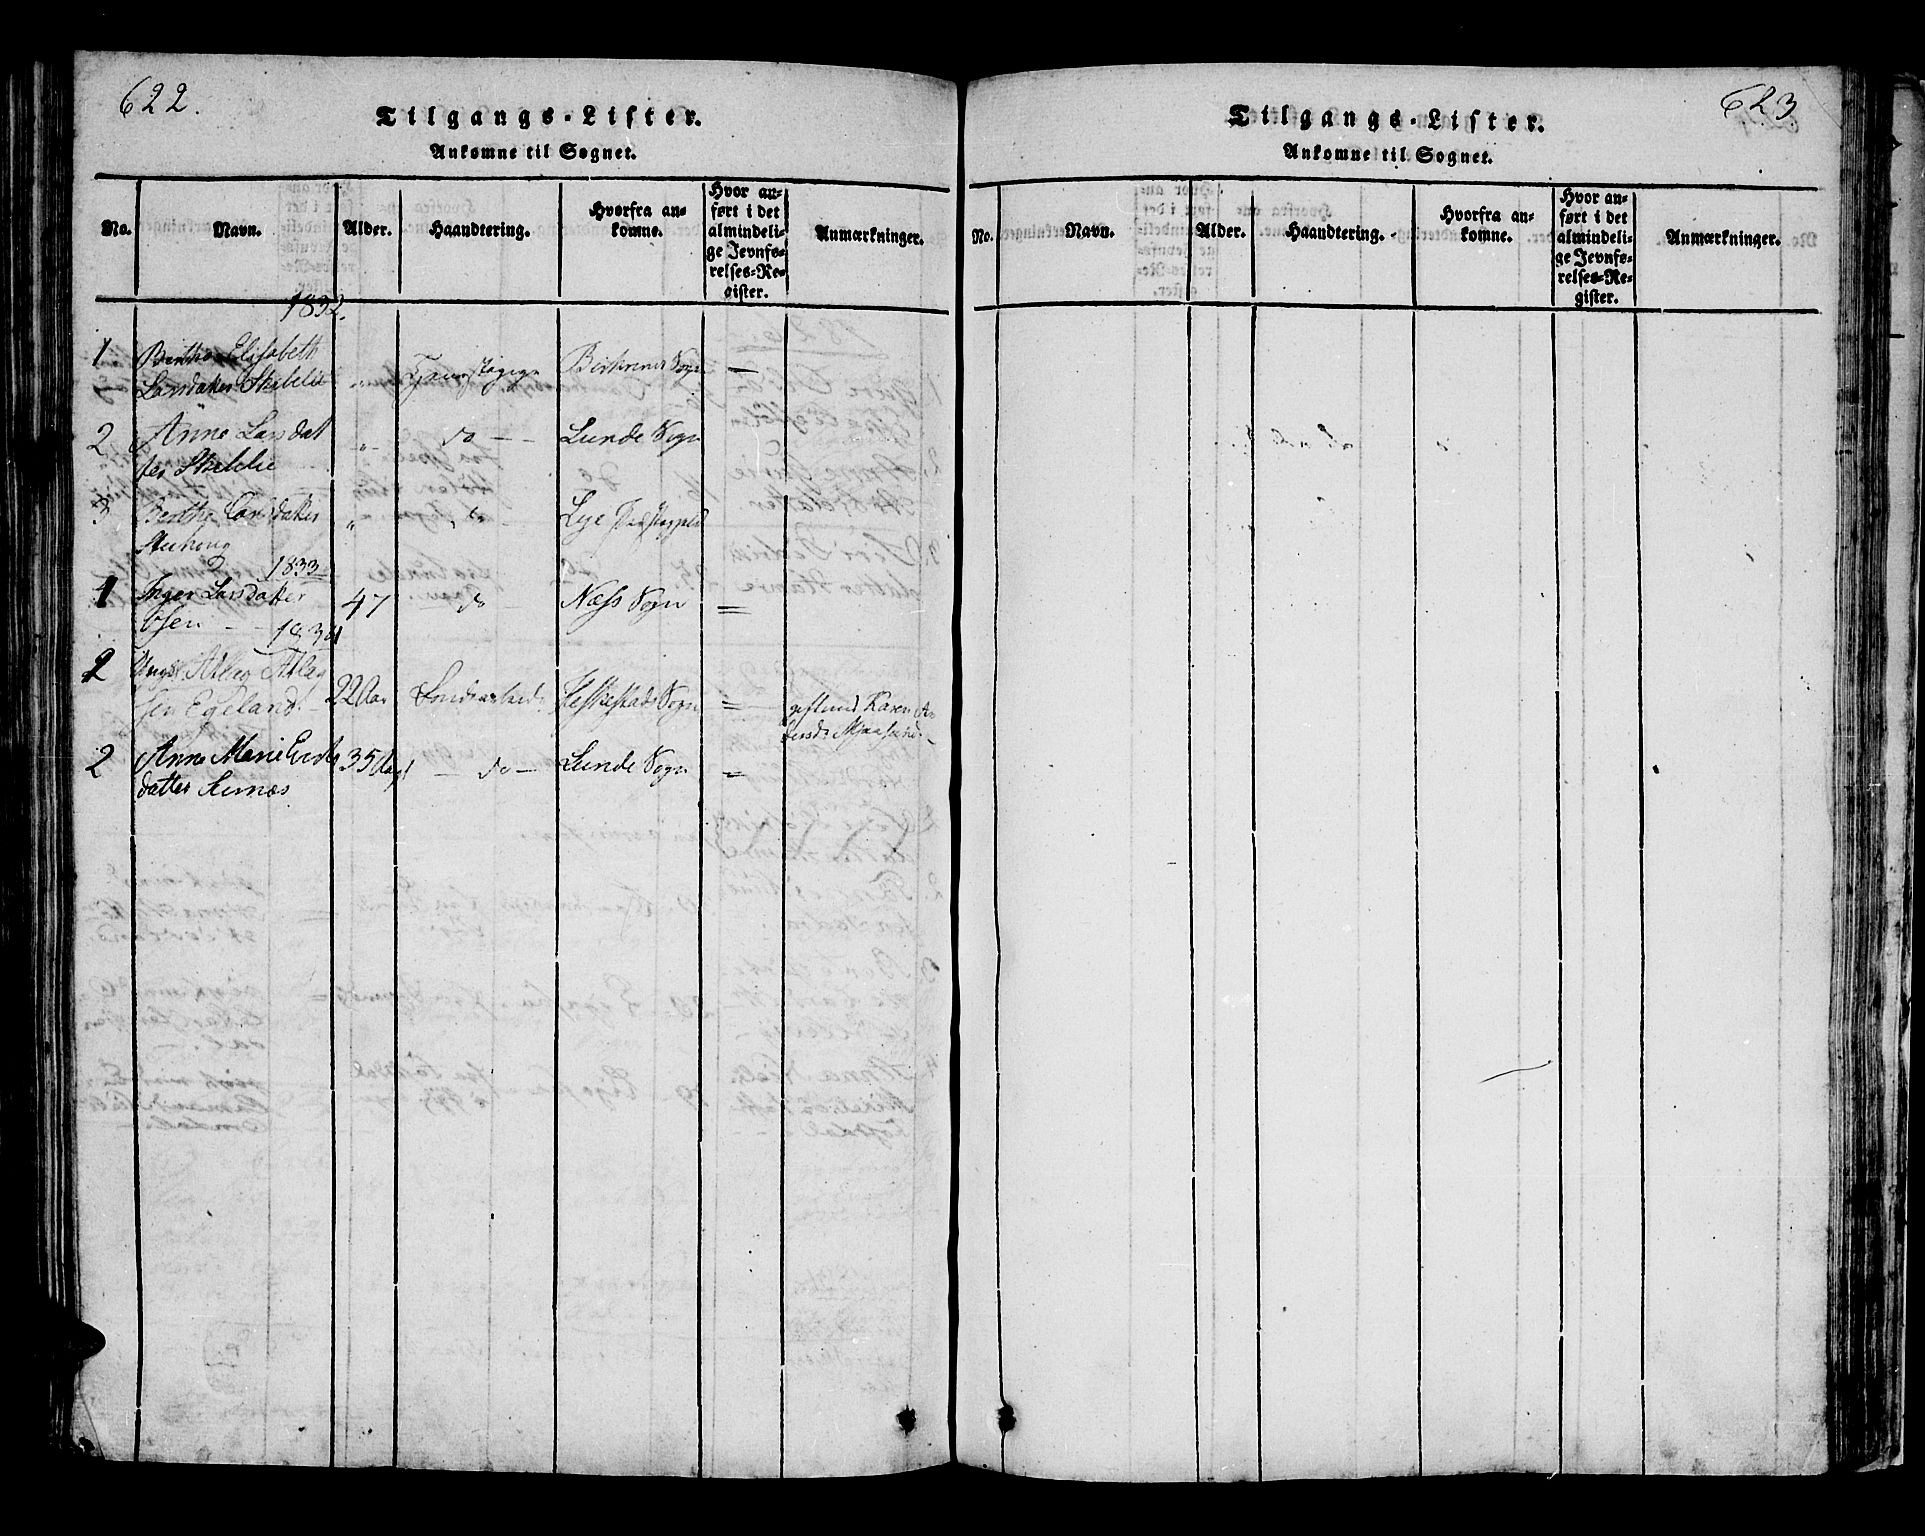 622.
Tilgangs-Lister.
Ankomne til Sognet.
No. Navn. Alder. Haandtering. Hvorfra ankomne. Hvor anført i det almindelige Jevnførelses-Register. Anmærkninger.
1832.
1 Berthe Elisabeth
Larsdatter Skibelie „ Tjenestepige Sogn —
2 Anne Larsdat
ter Skibelie „ do — Lunde Sogn
3 Berthe Larsdatter „ do Lye Præstegjeld
1833
1 Inger Larsdatter
Osen 47 do Næss Sogn =
1834
2 Ungk. Atlag Atlag
sen Egeland 22 Aar Heskestads Sogn = gift med Karen An
dersd.
2 Anne Marie
datter 35 Aar — do — Lunde Sogn =
623
Tilgangs-Lister.
Ankomne til Sognet.
No. Navn. Alder. Haandtering. Hvorfra ankomne. Hvor anført i det almindelige Jevnførelses-Register. Anmærkninger.